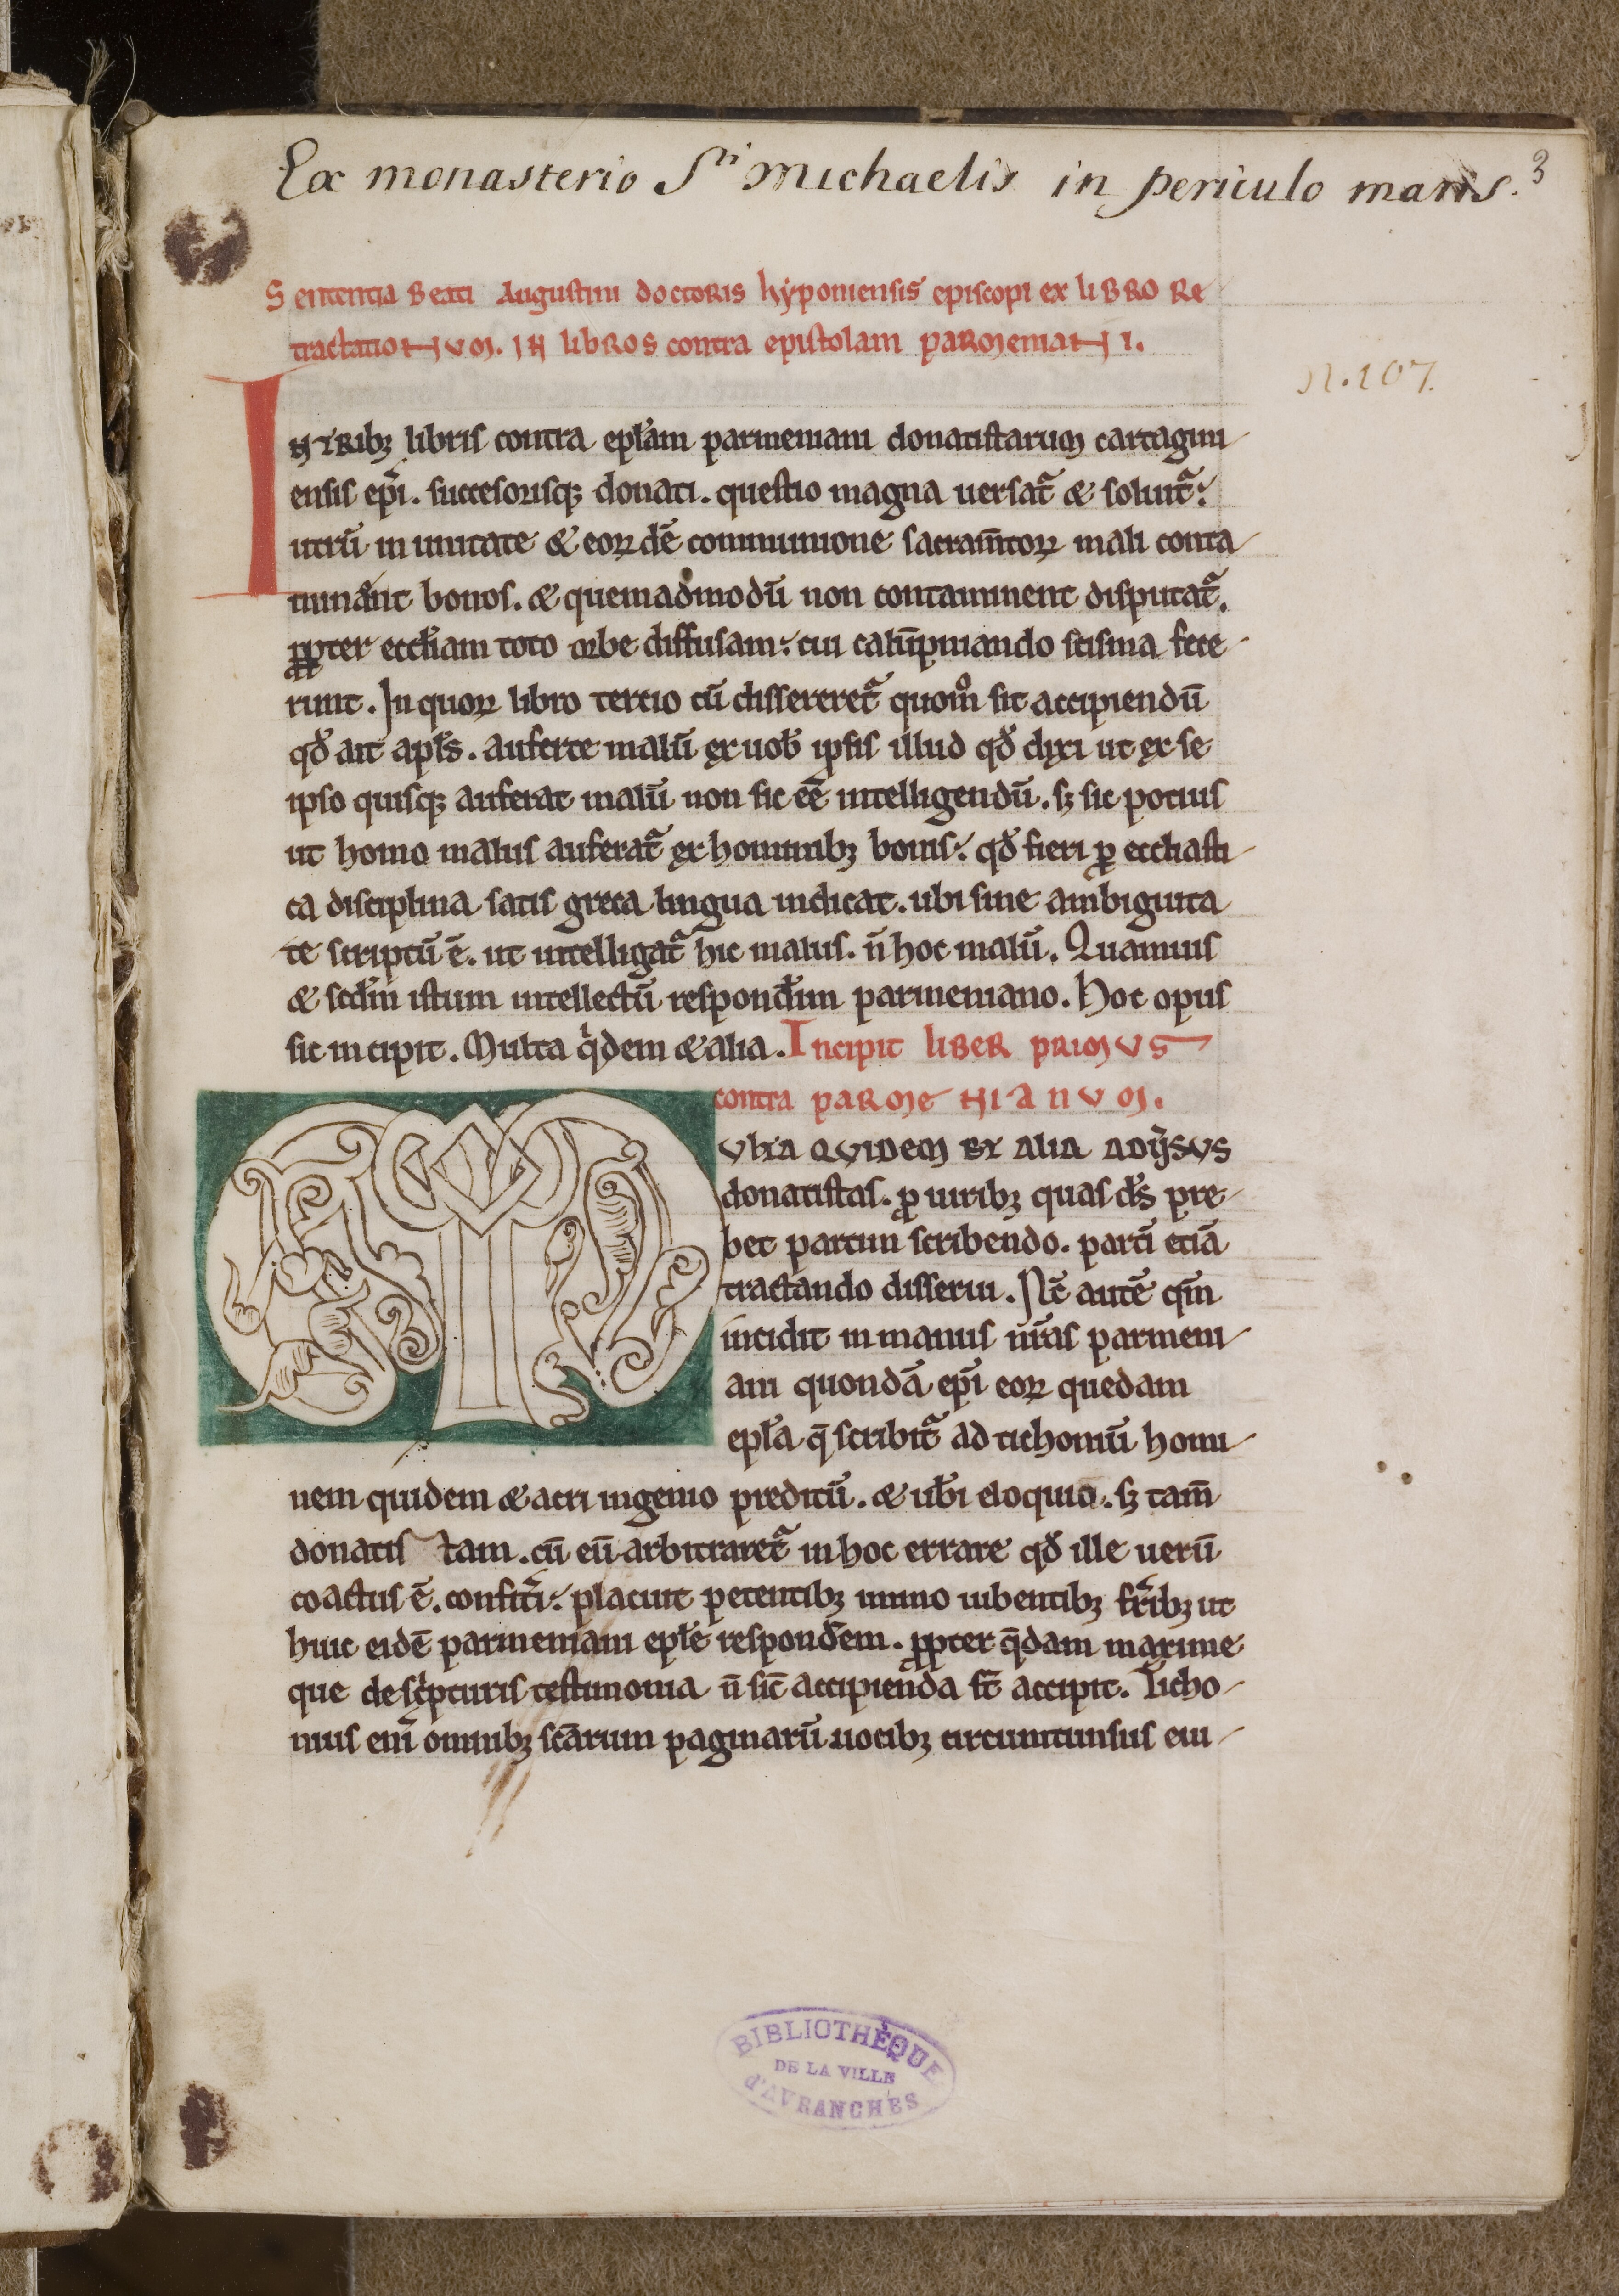 Ex monasterio Sti Michaelis in periculo maris. 3
Sententia Beati Augustini doctoris hyponiensis episcopi ex libro re
tractationum. In libros contra epistolam parmeniani.
N. 107.
In tribꝫ libris contra epl̃am parmeniani donatistarum cartagini
ensis ep̃i. succesorisqꝫ donati. questio magna uersat᷑ & soluit᷑:
utrũ in unitate & eoꝝdẽ communione sacram̃toꝝ mali conta
minant bonos. & quemadmodũ non contaminent disputat᷑.
ꝓpter eccl̃iam toto orbe diffusam: cui calũpniando scisma fece
runt. In quoꝝ libro tercio cũ dissereret᷑ quom̊ sit accipiendũ
qđ ait apl̃s. auferte malũ ex uob̃ ipsis illud qđ dixi ut ex se
ipso quisqꝫ auferat malũ non sic eẽ intelligendũ. sꝫ sic potius
ut homo malus auferat᷑ ex hominibꝫ bonis: qđ fieri ꝑ eccl̃iasti
ca disciplina satis greca lingua indicat. ubi sine ambiguita
te scriptũ ẽ. ut intelligat᷑ hic malus. ñ hoc malũ. Quamuis
& scd̃m istum intellectũ respond̃im parmeniano. Hoc opus
sic incipit. Multa qͥdem & alia. Incipit liber primus
contra parmenianum.
Multa quidem et alia aduˀsus
donatistas. ꝓ uiribꝫ quas d̃s pre
bet partim scribendo. partĩ etiã
tractando disserui. Nc̃ autẽ qm̃
incidit in manus nr̃as parmeni
ani quondã ep̃i eoꝝ quedam
epl̃a q̃ scribit᷑ ad tichoniũ homi
nem quidem & acri ingenio preditũ. & ub̃i eloquio. sꝫ tam̃
donatis tam. cũ eũ arbitraret᷑ in hoc errare qđ ille uerũ
coactus ẽ. confit̃i: placuit petentibꝫ immo iubentibꝫ fr̃ibꝫ ut
huic eidẽ parmeniani epl̃e respond̃em. ꝓpter q̃dam maxime
que de scͥpturis testimonia ñ sic̃ accipienda st̃ accipit. Ticho
nius enĩ omnibꝫ sc̃arum paginarũ uocibꝫ circumtunsus eui
BIBLIOTHÈQUE
DE LA VILLE
d'AVRANCHES